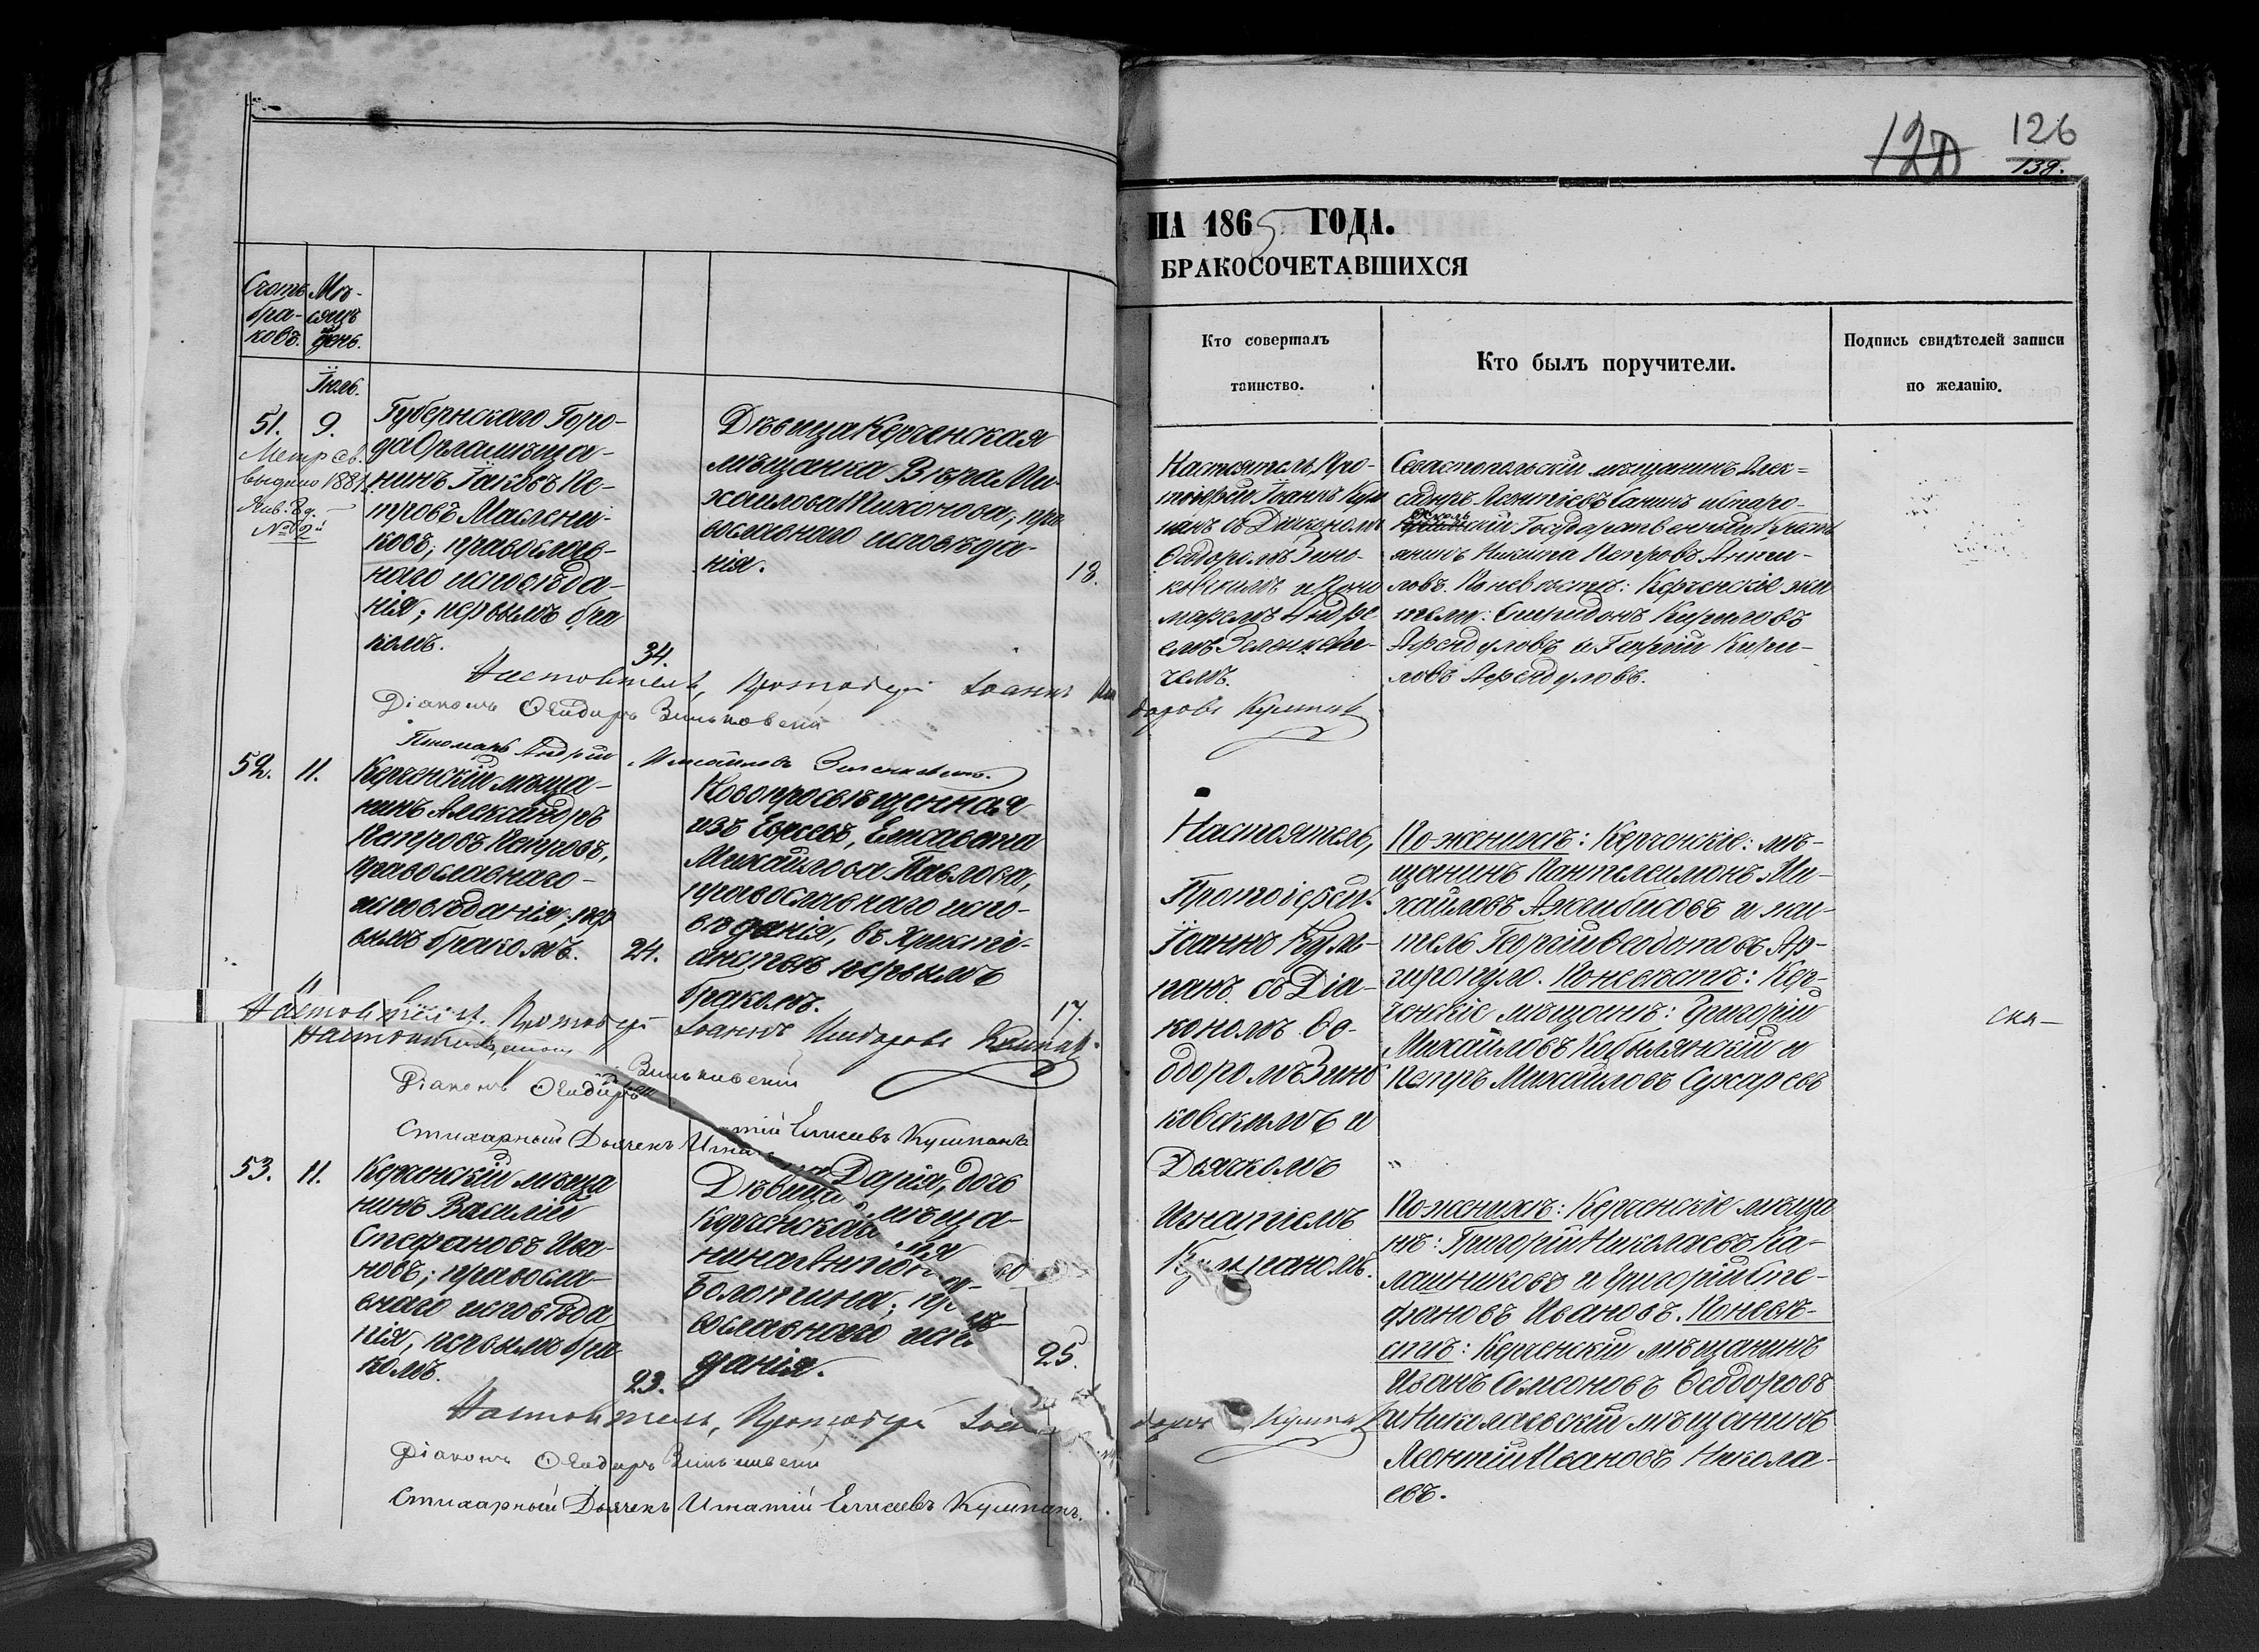 120 126
138.
НА 1865 ГОДА.
БРАКОСОЧЕТАВШИХСЯ
Счотъ
бра-
ковъ.
Мѣ-
сяцъ
и
день.
Кто совершалъ
таинство.
Кто былъ поручители.
Подпись свидѣтелей записи
по желанію.
Іюль.
51. 9.
Метр. св.
выдано 1881
Янв. 8 д.
№ 2й
Губернскаго Горо-
да Орла мѣща-
нинъ Іаковъ Пе-
тровъ Маслени-
ковъ; православ-
наго исповѣда-
нія; первымъ бра
комъ.
34.
Дѣвица Керченская
мѣщанка Вѣра Ми-
хаилова Тихонова; пра
вославнаго исповѣда-
нія.
18.
Настоятель Про-
тоіерей Іоаннъ Кум
панъ съ Діакономъ
Ѳеодоромъ Зино-
ковскимъ и Поно
маремъ Андре
емъ Зеленкеви-
чемъ.
Севастопольскій мѣщанинъ Алек-
сандръ Леонтіевъ Санинъ и Старо-
оскольскій Государственный крестъ
янинъ Никита Петровъ Анти-
ловъ. По невѣстѣ: Керченскіе жи
тели: Спиридонъ Кириловъ
Афендуловъ и Георгій Кири-
ловъ Афендуловъ.
Настоятель, Протоіерей Іоаннъ
доровъ Кумпанъ
Діаконъ Ѳеодоръ Зиньковскій
Пономарь Андрей Михайловъ Зеленкевичъ.
52. 11.
Керченскій мѣща-
нинъ Александръ
Петровъ Петровъ,
православнаго
исповѣданія; пер
вымъ бракомъ.
24.
Новопросвѣщенная
изъ Евреевъ, Елисавета
Михайлова Павлова,
православнаго испо-
вѣданія, въ Христі-
анствѣ первымъ
бракомъ.
17.
Настоятель,
Протоіерей
Іоаннъ Кум-
панъ съ Діа-
кономъ Ѳео-
доромъ Зинь
ковскимъ и
Дьячкомъ
Игнатіемъ
Кумпаномъ.
По женихѣ: Керченскіе: мѣ-
щанинъ Пантелеимонъ Ми-
хайловъ Ажибисовъ и жи-
тель Георгій Ѳеодотовъ Ар-
гиропуло. По невѣстѣ: Кер-
ченскіе мѣщане: Григорій
Михайловъ Кобылянскій и
Петръ Михайловъ Сухаревъ
ска-
Настоятель, Протоіерей Іоаннъ Исидоровъ Кумпанъ.
Настоятель
Діаконъ Ѳеодоръ Зиньковскій
Стихарный Дьячекъ Игнатій Елисеевъ Кумпанъ
53. 11.
Керченскій мѣща
нинъ Василій
Стефановъ Ива-
новъ; правосла-
внаго исповѣда
нія, первымъ бра
комъ.
23.
Дѣвица Дарія, дочь
Керченскаго мѣща-
нина
Болотина; пра-
вославнаго исповѣ-
данія.
25.
По женихѣ: Керченскіе мѣща
не: Григорій Николаевъ Ка-
лашниковъ и Григорій Сте-
фановъ Ивановъ. По невѣ-
стѣ: Керченскій мѣщанинъ
Иванъ Симеоновъ Ѳеодоровъ
и Николаевскій мѣщанинъ
Леонтій Ивановъ Никола-
евъ.
Настоятель, Протоіерей
Кумпанъ
Діаконъ Ѳеодоръ Зиньковскій
Стихарный Дьячекъ Игнатій Елисеевъ Кумпанъ.